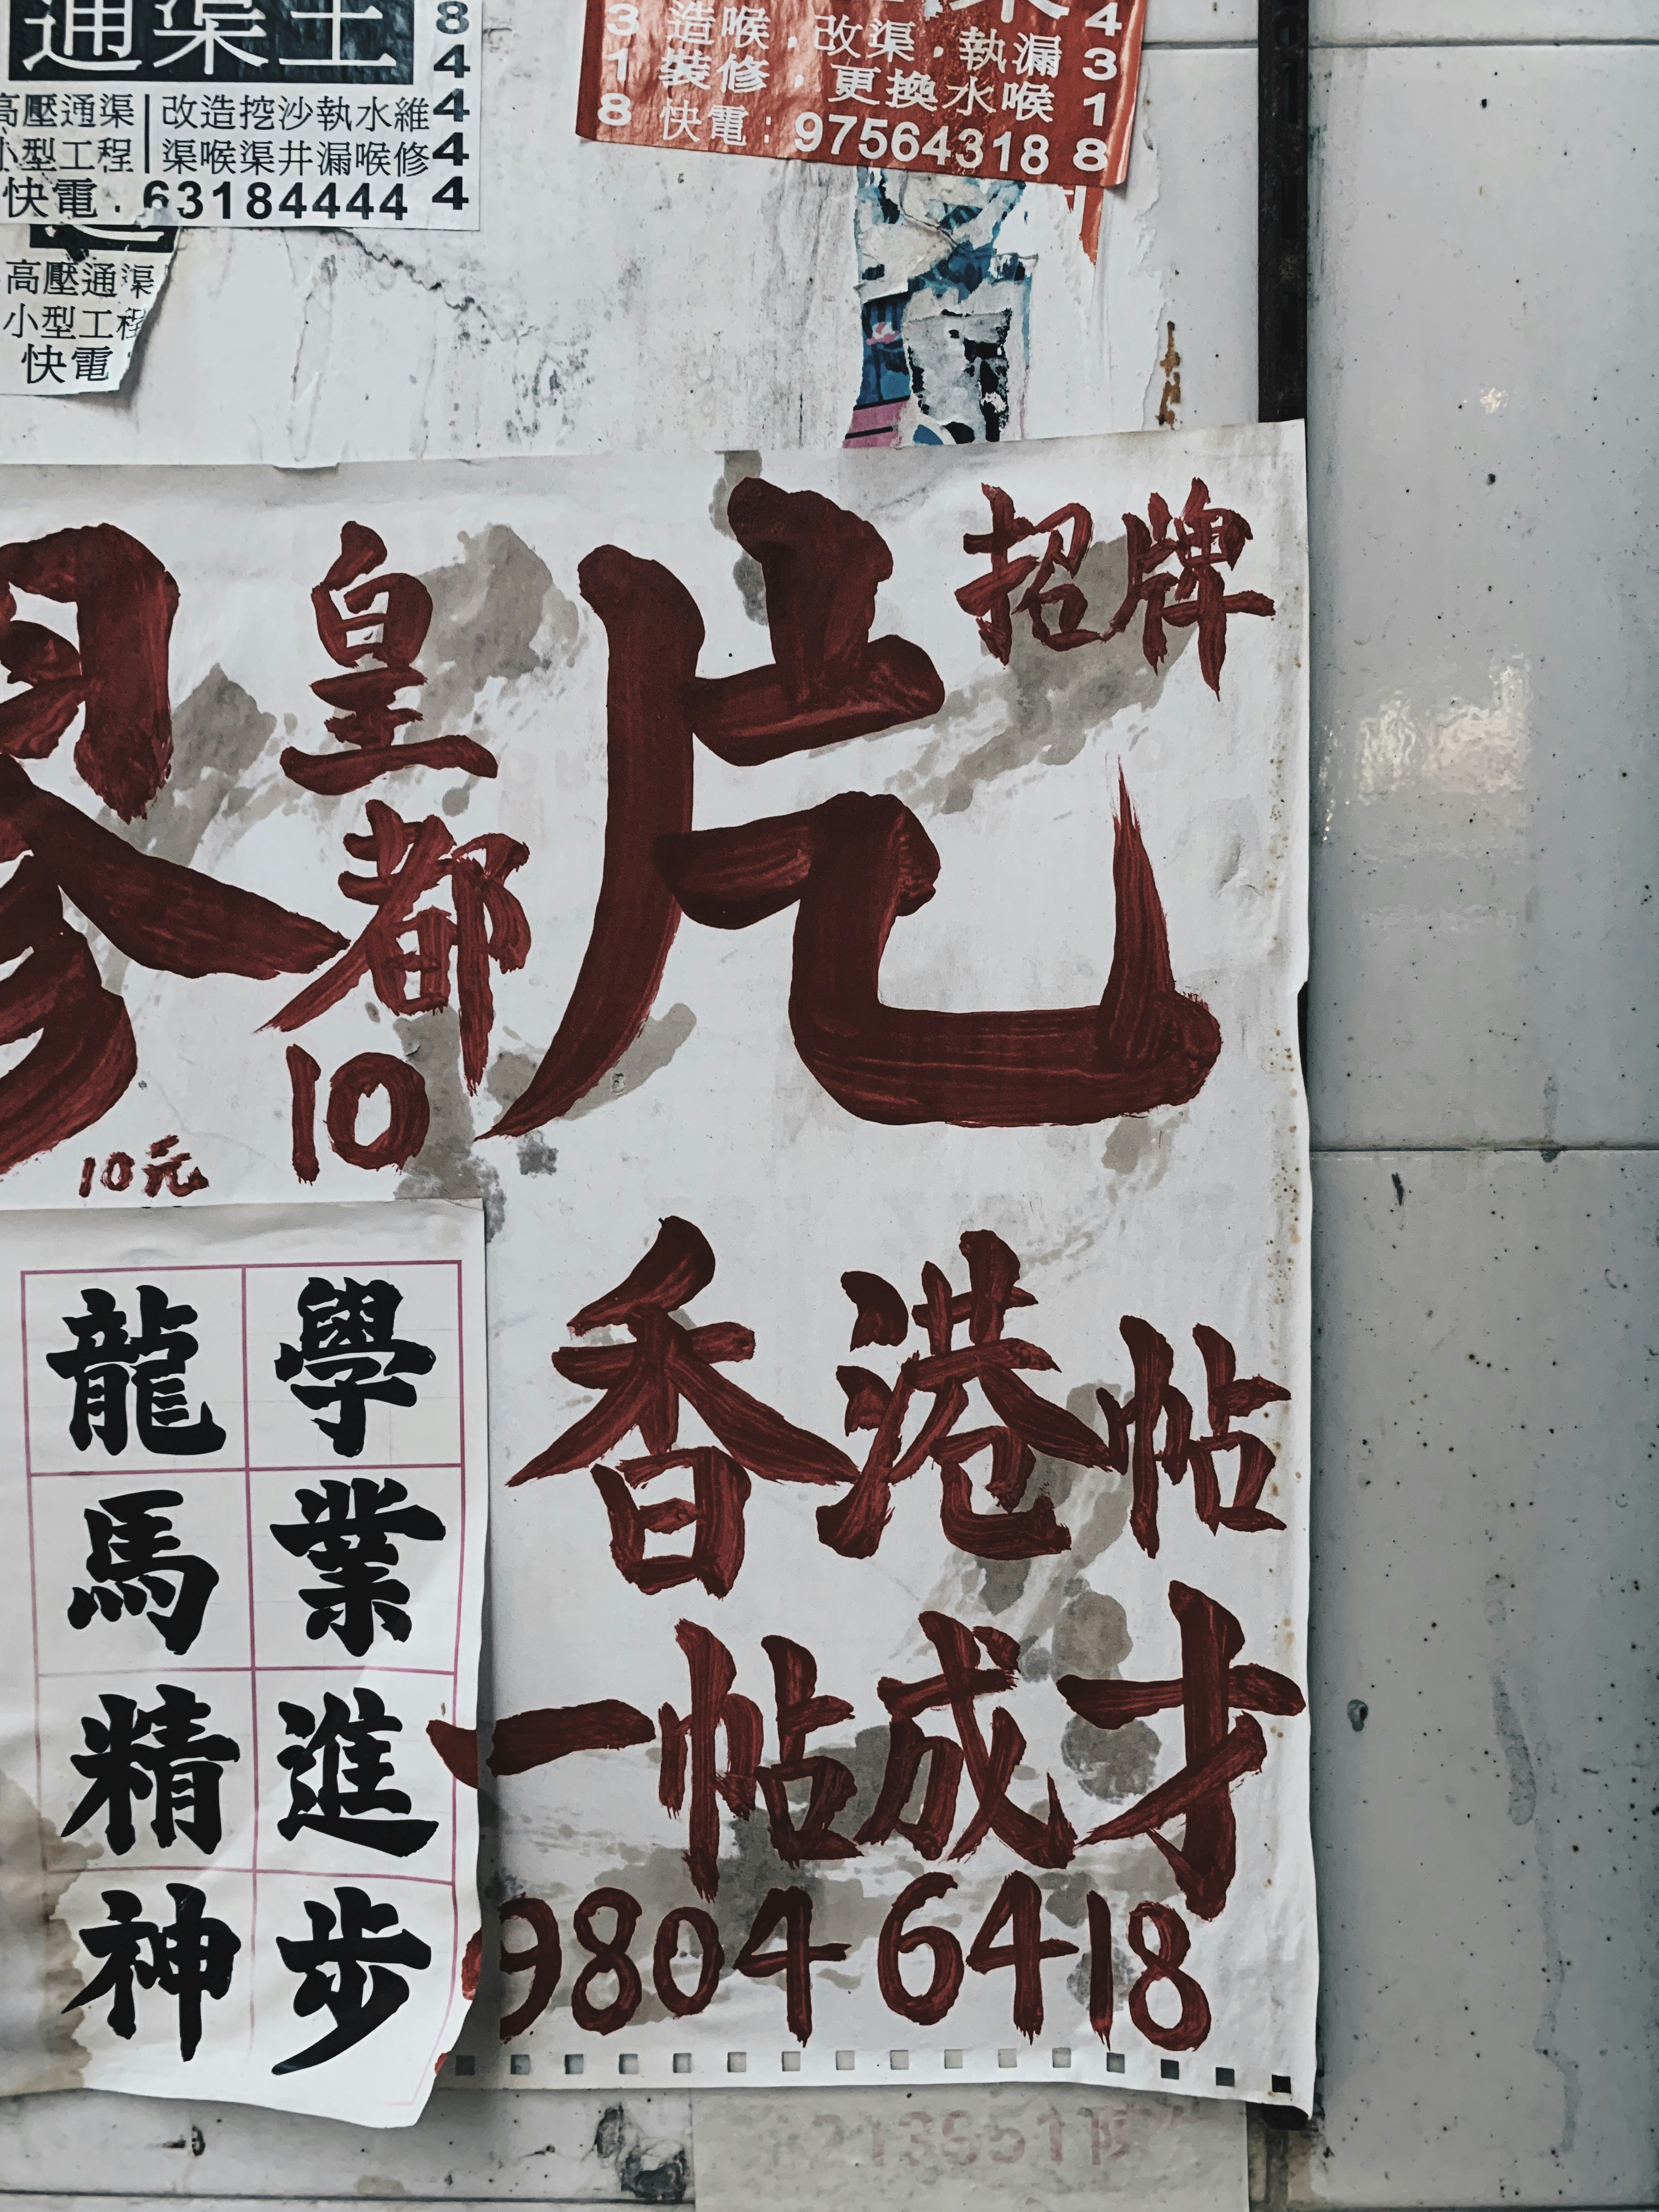 通渠王
高壓通渠 改造挖沙執水維
小型工程 渠喉渠井漏喉修
快電：63184444
84444
高壓通渠
小型工程
快電
造喉，改渠，執漏
裝修，更換水喉
快電：97564318
318
4318
招牌
皇都
10
10元
香港帖
一帖成才
9804 6418
學業進步
龍馬精神